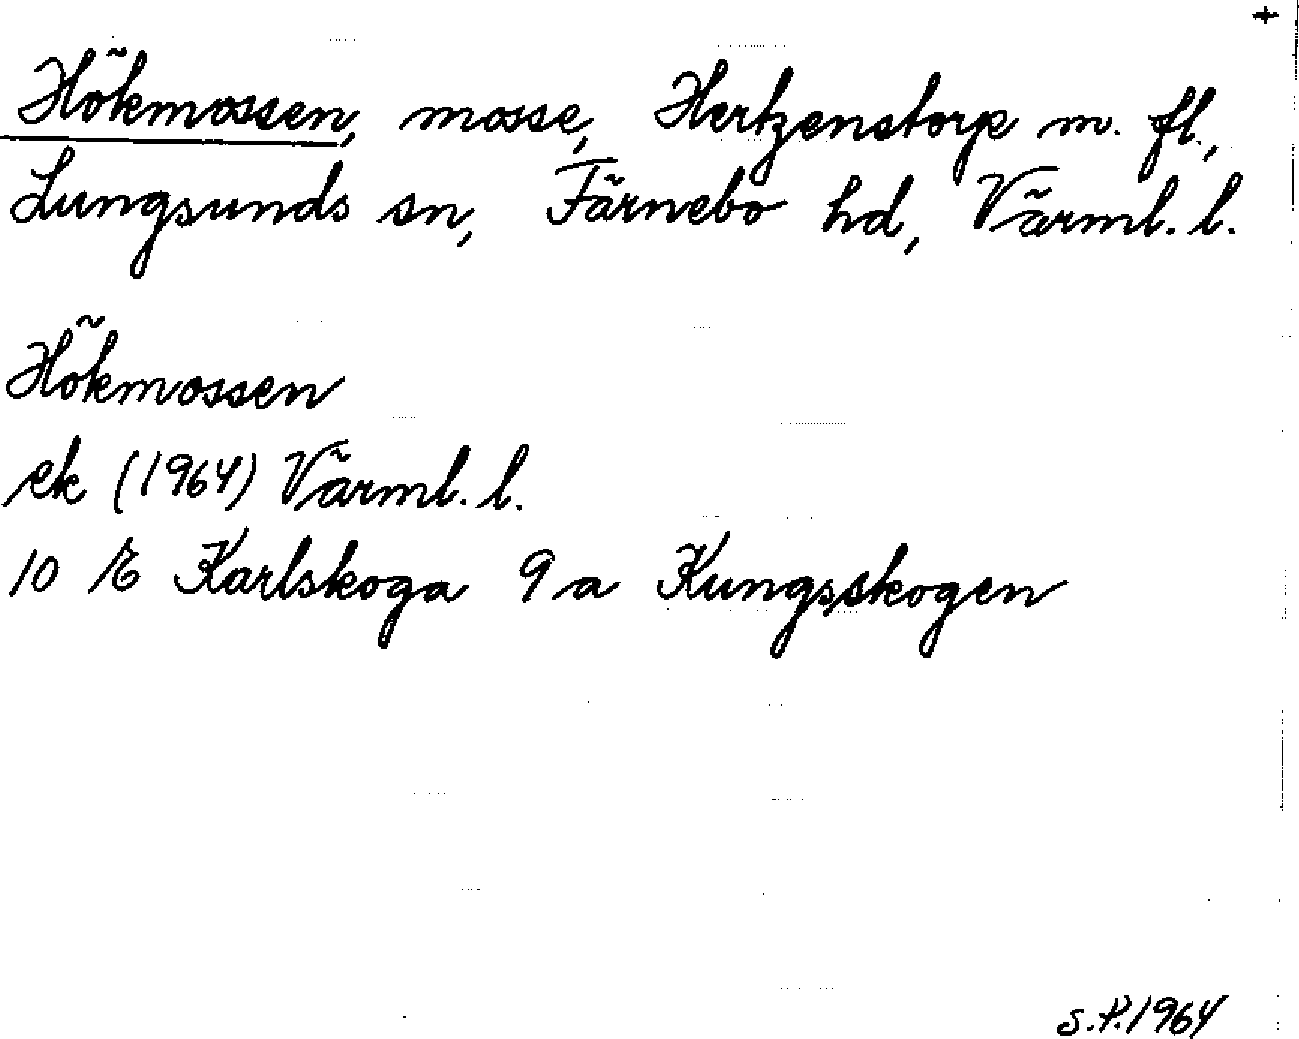 +
Hökmossen, mosse, Hertzenstorp m. fl.,
Lungsunds sn, Färnebo hd, Värml. l.
Hökmossen
ek (1964) Värml. l.
10 E Karlskoga 9 a Kungsskogen
S.P. 1964